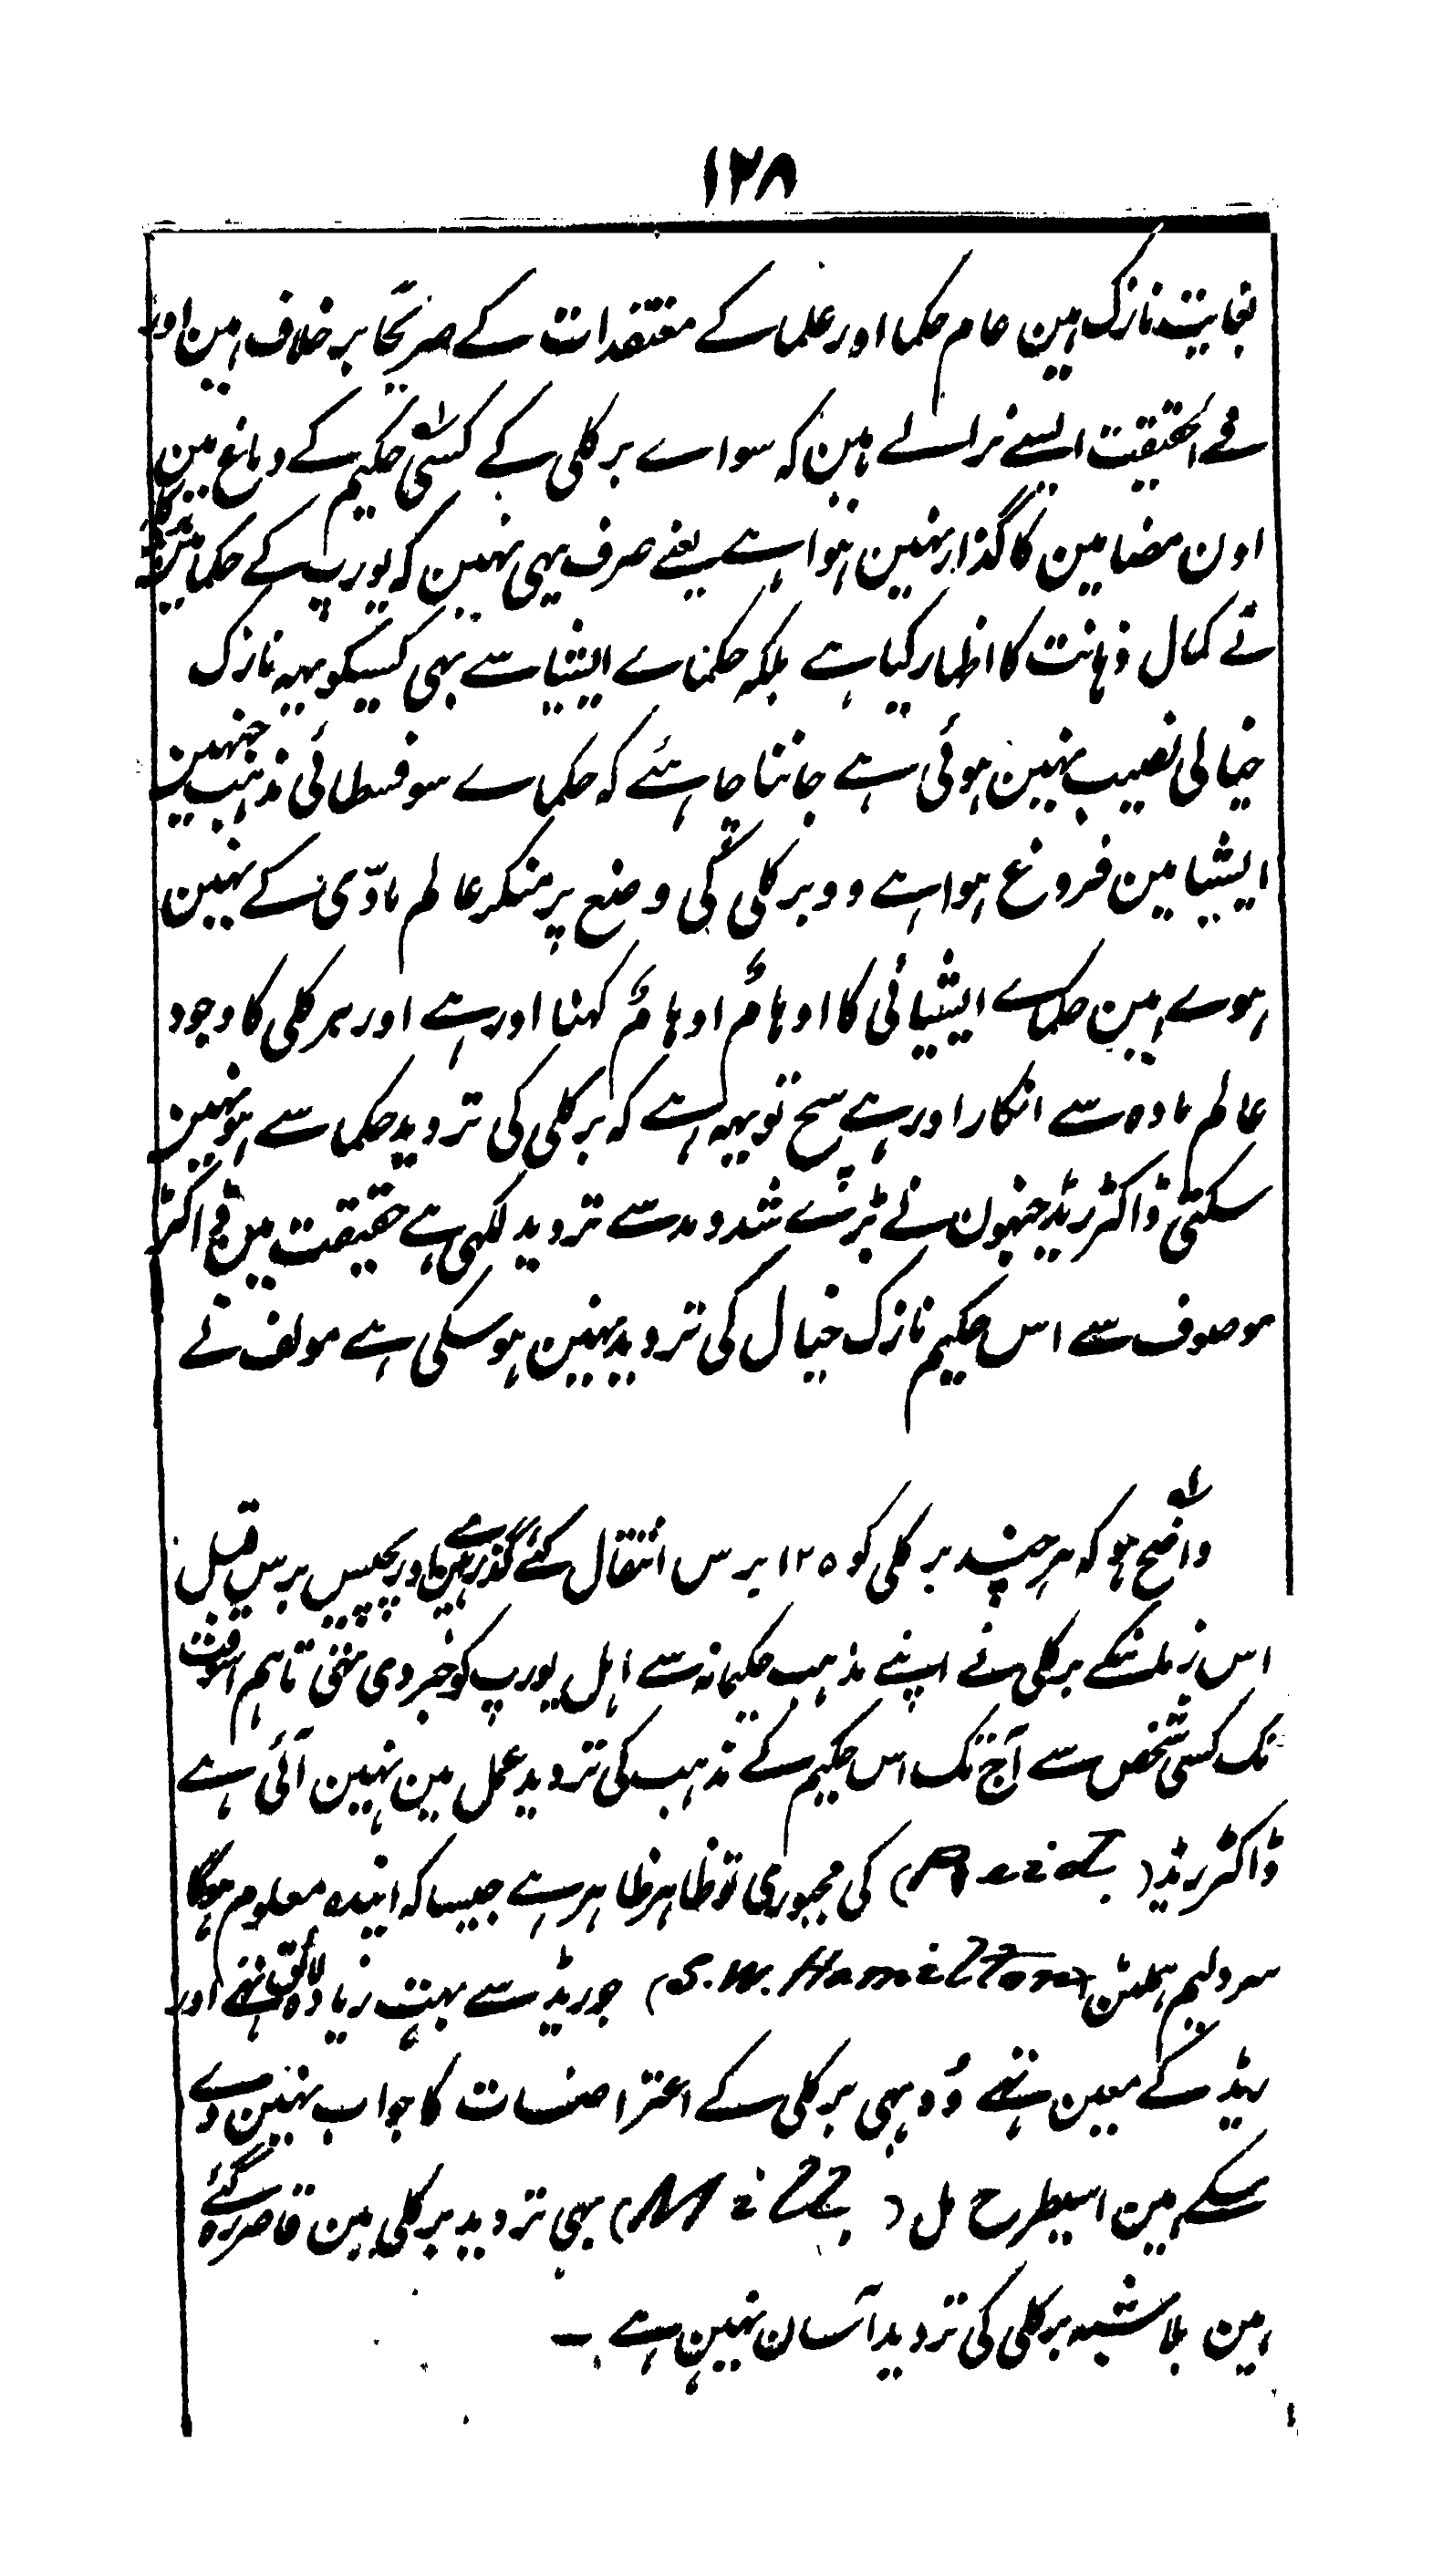 ١٢٨
بغایت نازک ہین عام حکما اور علما کے معتقدات کے صریحًا بر خلاف ہین اور
فے الحقیقت ایسے نرالے ہین کہ سواے برکلی کے کسی حکیم کے دماغ مین
اون مضامین کا گذار نہین ہوا ہے یعنے صرف یہی نہین کہ یورپ کے حکما مین
نے کمال ذہانت کا اظہار کیا ہے بلکہ حکماے ایشیا سے بہی کسیکو یہہ نازک
خیالی نصیب نہین ہوئی ہے جاننا چاہئے کہ حکماے سوفسطائی مذہب جنہین
ایشیا مین فروغ ہوا ہے وہ برکلی کی وضع پر منکر عالم مادّی کے نہین
ہوے ہین حکماے ایشیائی کا اوہامٌ اوہامٌ کہنا اور ہے اور برکلی کا وجود
عالم مادہ سے انکار اور ہے سچ تو یہہ ہے کہ برکلی کی تردید حکما سے ہو نہین
سکتی ڈاکٹر ریڈ جنہون نے بڑے شد و مد سے تردید لکہی ہے حقیقت مین ڈاکٹر
موصوف سے اس حکیم نازک خیال کی تردید نہین ہو سکی ہے مولف نے
واضح ہو کہ ہر چند برکلی کو ١٢٥ برس انتقال کئے گذرے ہین اور پچیس برس قبل
اس زمانہ کے برکلی نے اپنے مذہب حکیمانہ سے اہل یورپ کو خبر دی تھی تاہم اسوقت
تک کسی شخص سے آج تک اس حکیم کے مذہب کی تردید عمل مین نہین آئی ہے
ڈاکٹر ریڈ (Reid) کی مجبوری تو ظاہر ظاہر ہے جیسا کہ ایندہ معلوم ہوگا
سر ولیم ہملٹن (S.W. Hamilton) جو ریڈ سے بہت زیادہ لائق تہے اور
ریڈ کے معین تہے وُہ بہی برکلی کے اعتراضات کا جواب نہین دے
سکے ہین اسیطرح مل (Mill) بہی تردید برکلی مین قاصر رہ گئے
ہین بلا شبہہ برکلی کی تردید آسان نہین ہے ۔